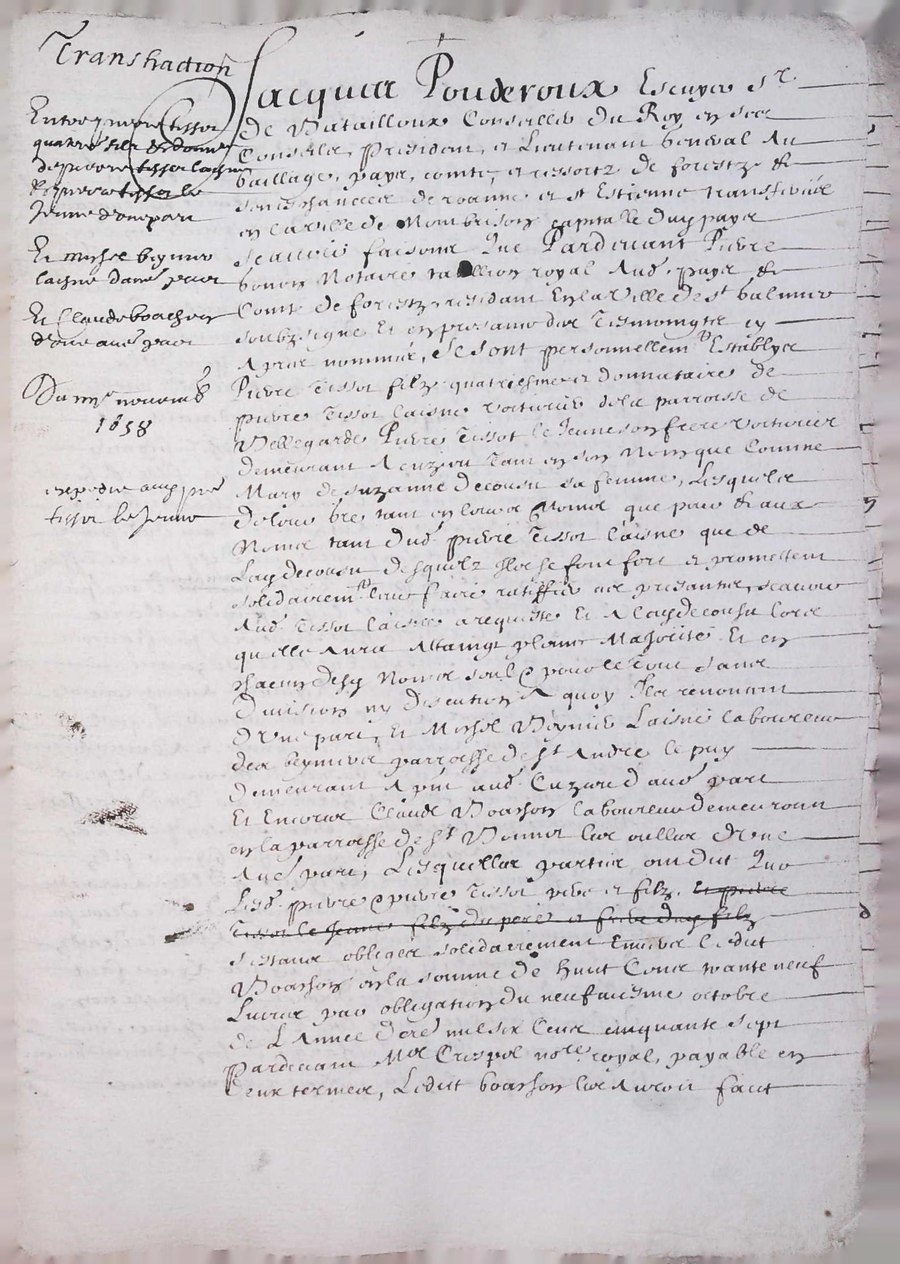 Transhaction
Entre pierre tissot
quatrie filz & donna
de pierre tissot laisne
& pierre tissot le
Jeune d'une part
Et michel beynier
laisne dau part
Et Claude boasson
d'une aue part
Du novemb
1658
expedie aud pre
tissot le Jeune
Jacques Pouderoux Escuyer sr
de Batailloux Conseiller du Roy en ses
Conseilz, president, et Lieutenant general au
bailliage, pays, comte, et ressortz de forestz &
senechaucee de roanne et st Estienne transferés
en la ville de Montbrison capitalle dud pays
scauoir faisons que Pardeuant Pierre
notaire tabellion royal aud pays &
Comte de forestz residant En la Ville de st balmier
soubzsigné Et en presance des tesmoingtz cy
Apres nommés, se sont personnellemt Establys
Pierre tissot filz quatriesme et donnataire de
pierre tissot laisne voiturier de la parroisse de
Bellegarde Pierre tissot le Jeune son frere voiturier
demeurant A cuzieu tant en son Nom que Comme
Mary de suzanne decousu sa femme, Lesquelz
de leur bre tant en leurs Noms que pour & aux
Noms tant dud pierre tissot laisne que de
Lad decousu desquelz Ilz se font fort et promettent
solidairemt leur faire ratiffier ces presantes, scauoir
Aud tissot laisne a requeste Et A lad decousu lors
quelle Aura Attaingt plaine Majorité Et en
chacun desd Noms seul & pour le tout sans
Diuision ny discution A quoy Ilz renoncent
d'Une part, Et Michel Beynier Laisné laboureur
des beyniers parroisse de st André le puy
demeurant A pnt aud Cuzieu d'aue part
Et Encores Claude Boasson laboureur demeurant
en la parroisse de st Bonnet les oulles d'une
Aue part, Lesquelles parties ont dit Que
Lesd pierre & pierre tissot pere et filz, Et pierre
tissot le Jeune filz du pere et frere dud filz
sestant obligés solidairement Enuers ledit
Boasson en la somme de huit Cens nante neuf
Liures par obligation du neufuiesme octobre
de L'Annee dere mil six Cens cinquante sept
Pardeuant Me Crespol nore royal, payable en
deux termes, Ledit boasson les Auroit faict